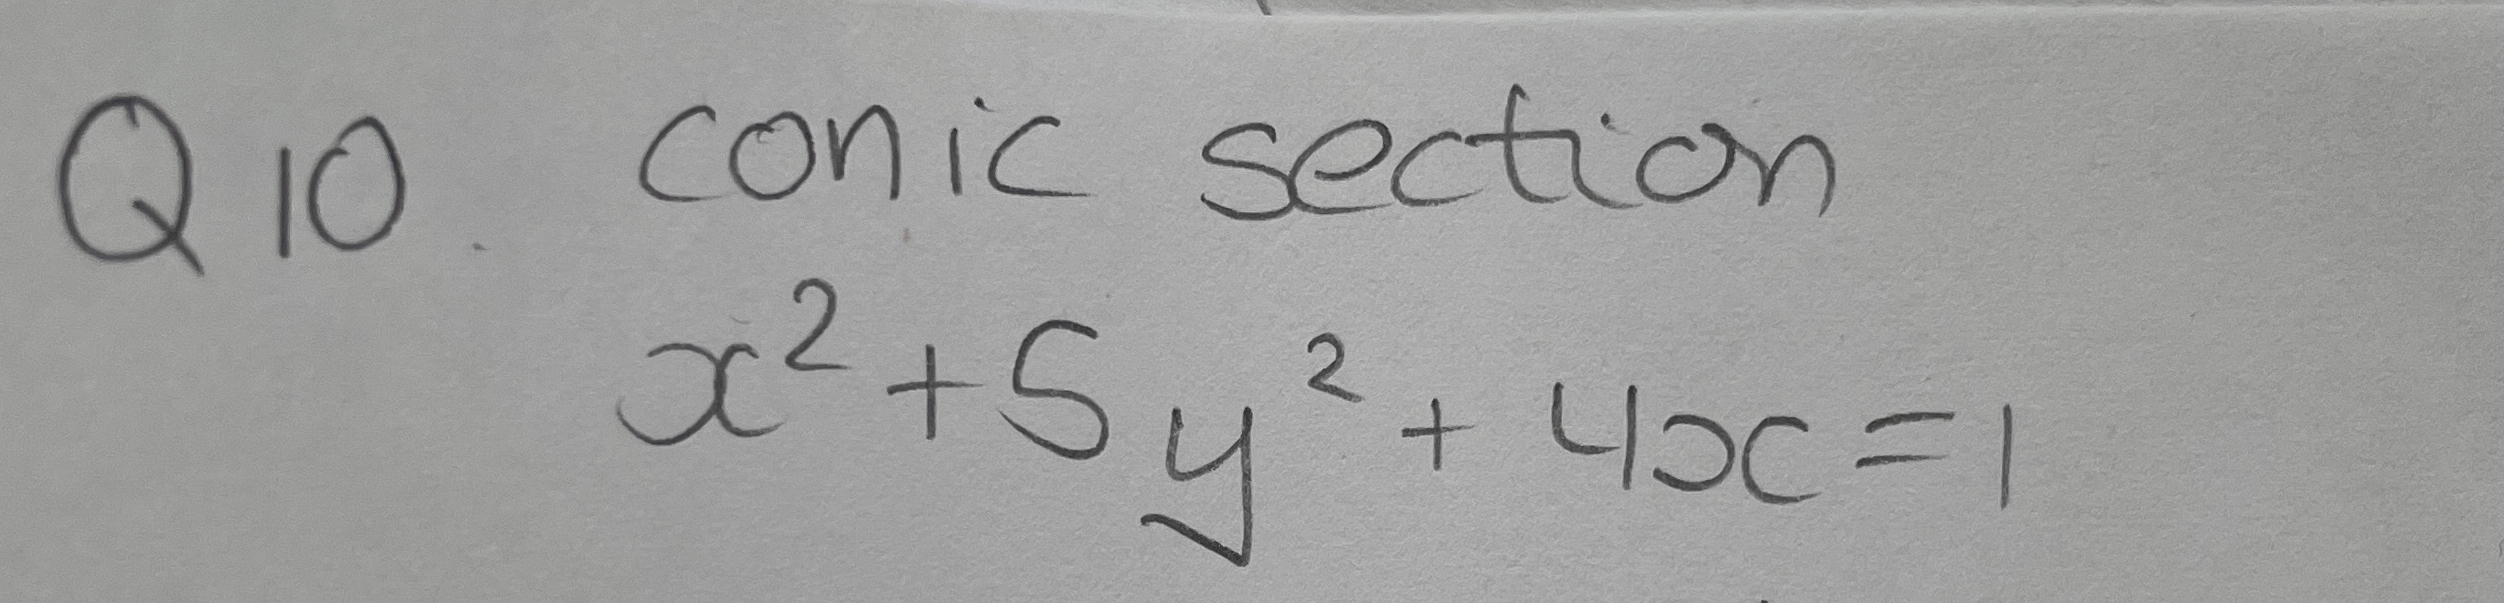 Q10. conic section
x²+5y²+4x=1